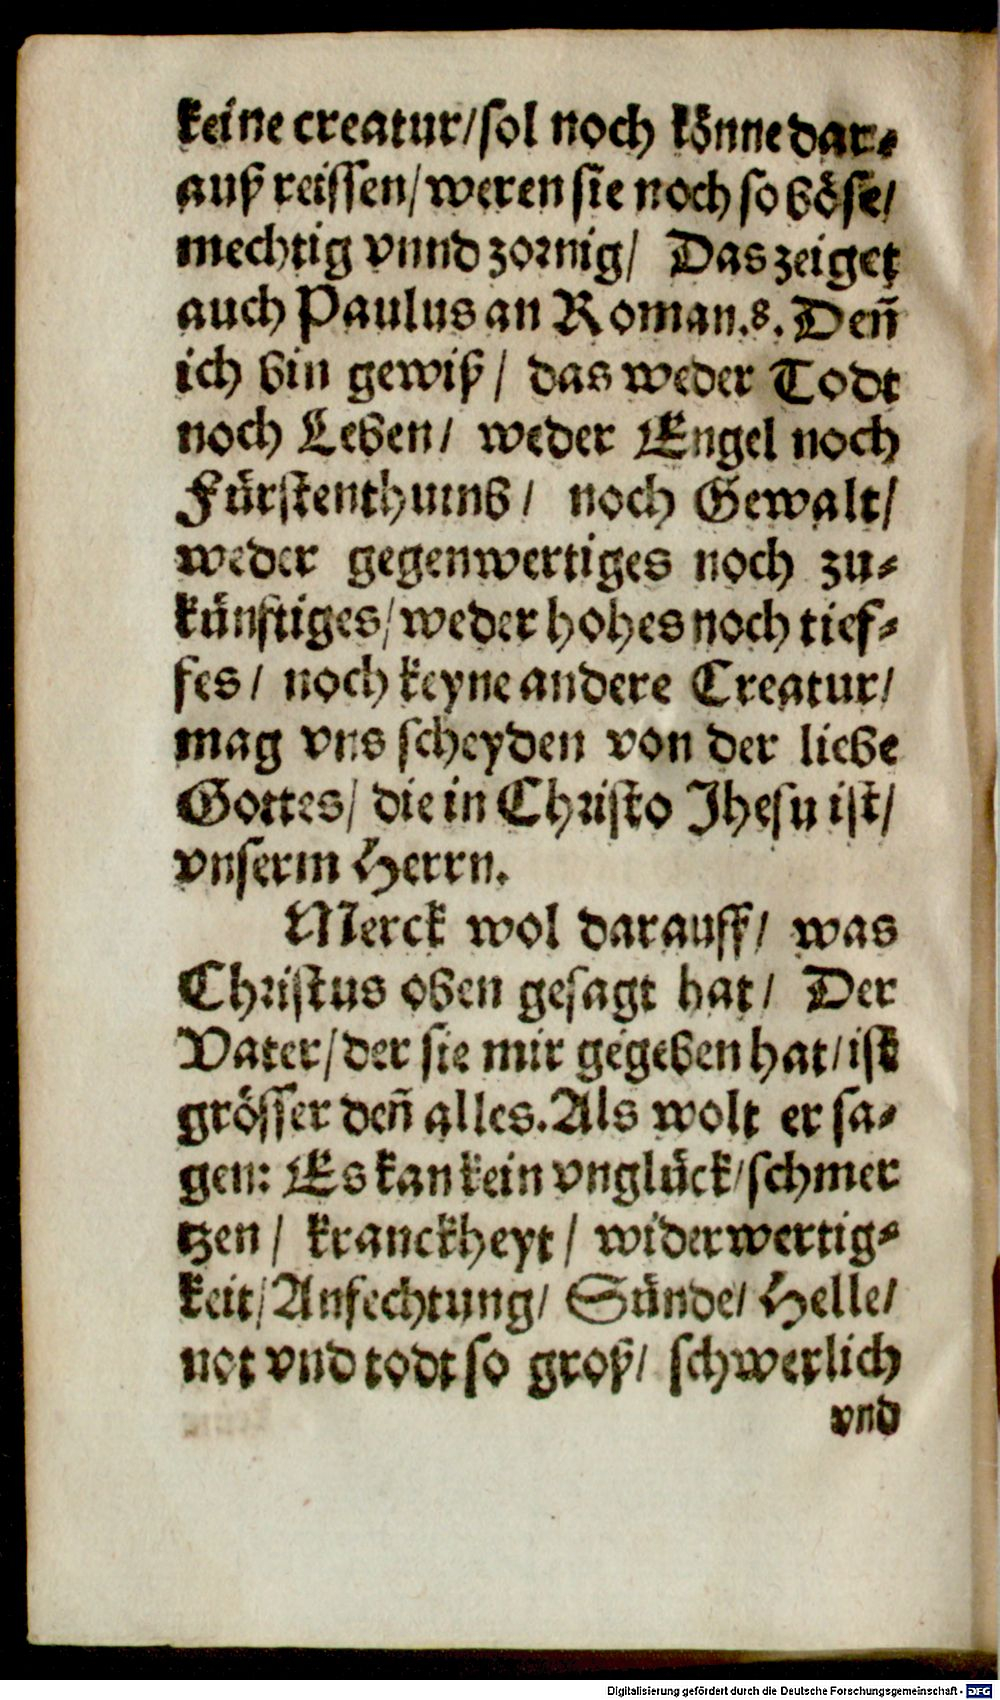 keine creatur/sol noch könne dar⸗
auß reissen/weren sie noch so böse/
mechtig vnnd zornig/ Das zeiget
auch Paulus an Roman.8. Deñ
ich bin gewiß/ das weder Todt
noch Leben/ weder Engel noch
Fürstenthumb/ noch Gewalt/
weder gegenwertiges noch zu⸗
künftiges/weder hohes noch tief⸗
fes/ noch keyne andere Creatur/
mag vns scheyden von der liebe
Gottes/ die in Christo Jhesu ist/
vnserm Herrn.
Merck wol darauff/ was
Christus oben gesagt hat/ Der
Vater/der sie mir gegeben hat/ist
grösser deñ alles. Als wolt er sa⸗
gen: Es kan kein vnglück/schmer
tzen/ kranckheyt/ widerwertig⸗
keit/Anfechtung/ Sünde/ Helle/
not vnd todt so groß/ schwerlich
vnd
Digitalisierung gefördert durch die Deutsche Forschungsgemeinschaft - DFG